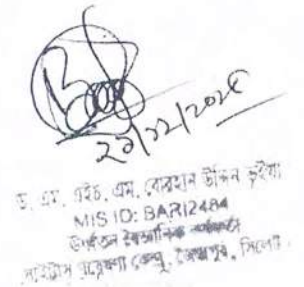 ২২/১২/২০২৫
ড. এম. এইচ. এম. বোরহান উদ্দিন ভূইয়া
MIS ID: BARI2484
ঊর্ধ্বতন বৈজ্ঞানিক কর্মকর্তা
সাইট্রাস গবেষণা কেন্দ্র, জৈন্তাপুর, সিলেট।